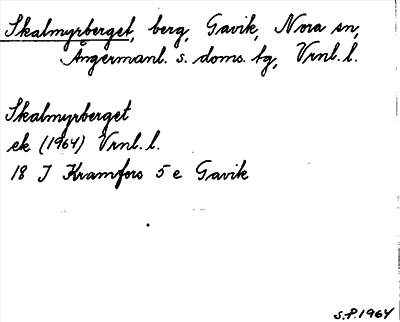 Skalmyrberget, berg, Gavik, Nora sn,
Ångermanl. s. doms. tg, Vrnl. l.
Skalmyrberget
ek (1964) Vrnl. l.
18 J Kramfors 5 e Gavik
S.P. 1964